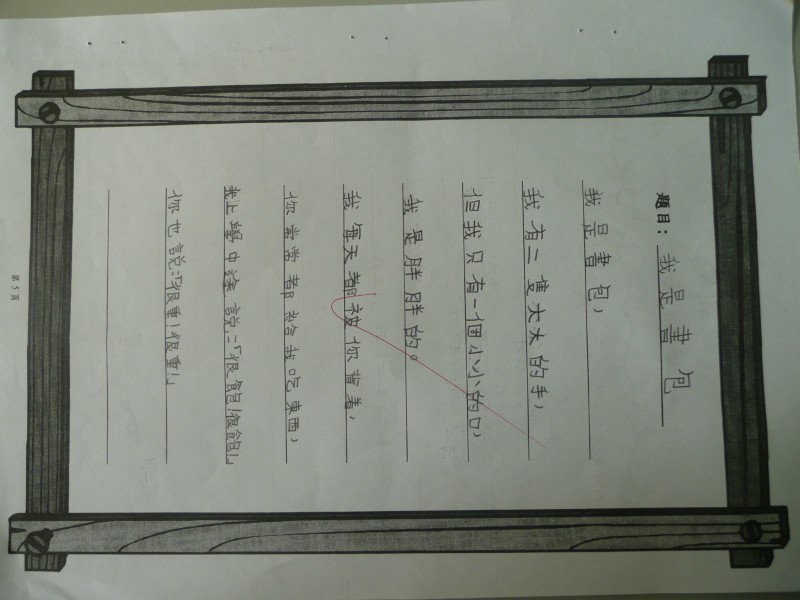 題目：我是書包
我是書包，
我有二隻大大的手，
但我只有一個小小的口，
我是胖胖的。
我每天都被你背着，
你常常都給我吃東西，
我上學中途說：「很飽！很飽！」
你也説：「很重！很重！」
第5頁